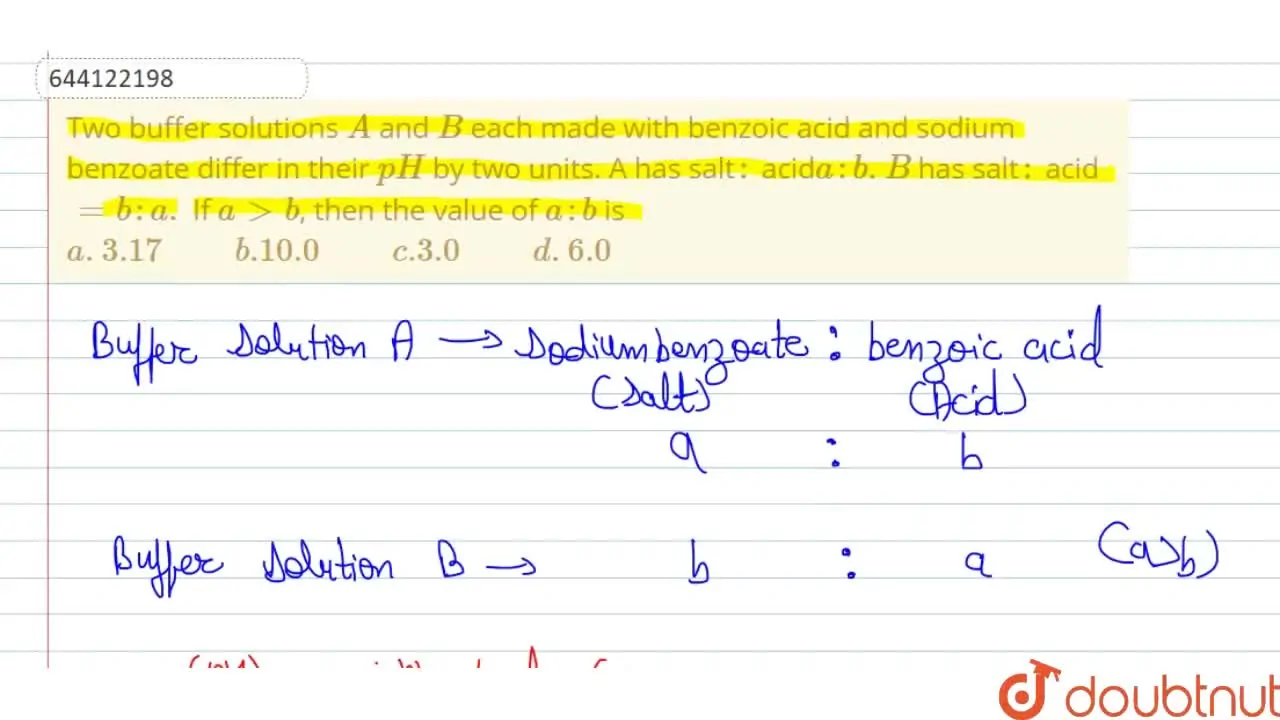 644122198
Two buffer solutions A and B each made with benzoic acid and sodium
benzoate differ in their pH by two units. A has salt: acida : b. B has salt: acid
= b : a. If a > b, then the value of a : b is
a. 3.17 b.10.0 c.3.0 d. 6.0
Buffer solution A → sodiumbenzoate : benzoic acid
(salt) (Acid)
a : b
Buffer solution B → b : a (a>b)
doubtnut